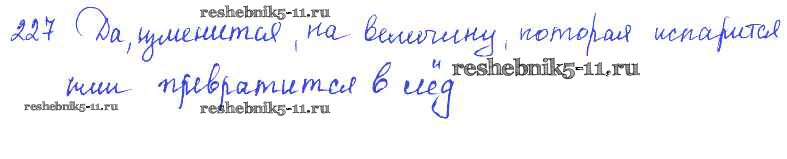 reshebnik5-11.ru
227 Да, изменится, на величину, которая испарится
или превратится в лёд
reshebnik5-11.ru
reshebnik5-11.ru reshebnik5-11.ru